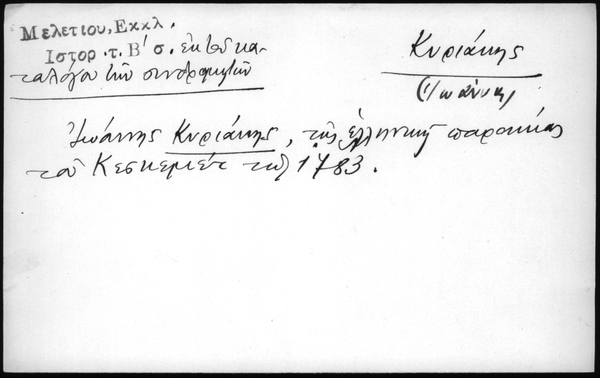 Μελετίου, Εκκλ.
Ιστορ. τ. Β' σ. ἐκ τοῦ κα-
ταλόγου τῶν συνδρομητῶν
Κυριάκης
(Ἰωάννης)
Ἰωάννης Κυριάκης, τῆς ἑλληνικῆς παροικίας
τοῦ Κεσκεμιέτ τῷ 1783.